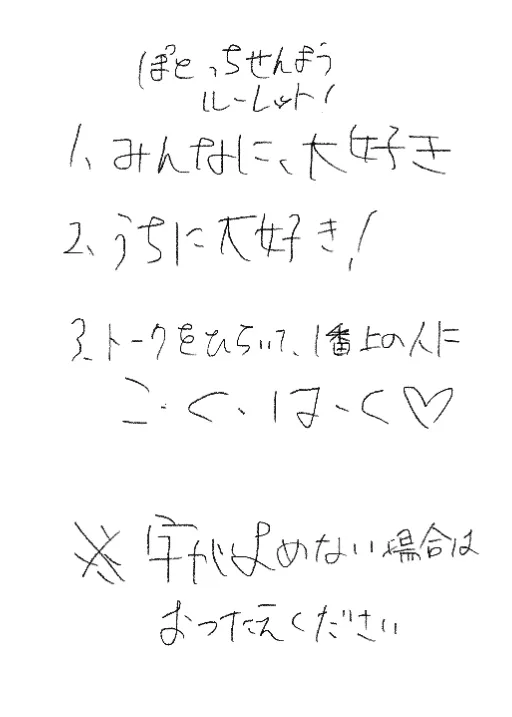 ぽとっちせんよう
ルーレット!
1、みんなに、大好き
2、うちに大好き!
3、トークをひらいて、1番上の人に
こ・く・は・く♡
※ 字がよめない場合は
おつたえください